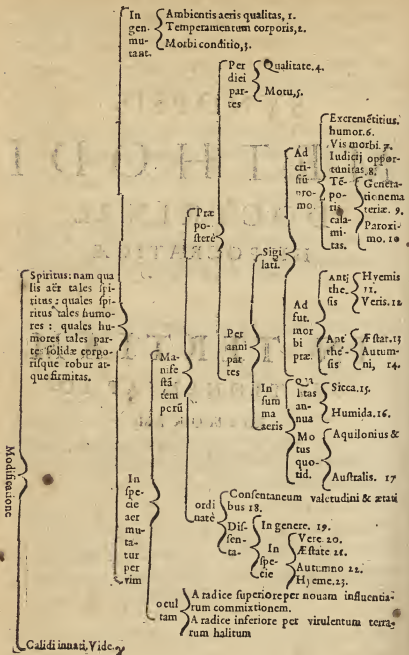 Modificatione
Spiritus: nam qua
lis aër tales spi-
ritus: quales spi-
ritus tales humo-
res: quales hu-
mores tales par-
tes solidæ corpo-
risque robur at-
que firmitas.
In
gen.
mu-
tant.
Ambientis aeris qualitas, 1.
Temperamentum corporis, 2.
Morbi conditio, 3.
In
spe-
cie
aer
mu-
ta-
tur
per
vim
Ma-
nife
stā-
tem
perū
Præ
po-
sterè
Per
diei
par-
tes
Qualitate. 4.
Motu, 5.
Per
anni
pārtes
Sigi
lati.
Ad
cri-
siū
pro-
mo.
Excremētitius.
humor. 6.
Vis morbi. 7.
Iudicij oppor-
tunitas. 8.
Tē-
po-
ris
cala-
mi-
tas.
Genera-
tione ma
teriæ. 9.
Paroxi-
mo. 10
Ad
fut.
mor
bi
præ.
Antj
the-
sis
Hyemis
11.
Veris. 12
Ant
thé-
sis
Æstat. 13
Autum-
ni, 14.
In
sum
ma
aeris
litas
an-
nua
Sicca. 15.
Humida. 16.
Mo
tus
quo-
tid.
Aquilonius &
Australis. 17
ordi
natè
Consentaneum valetudini & ætati
bus 18.
Dis-
sen-
ta-
In genere. 19.
In
spe-
cie
Vere. 20.
Æstate 21.
Autumno 22.
Hyeme. 23.
ocul
tam
A radice superiore per nouam influentia-
rum commixtionem.
A radice inferiore per virulentum terra-
rum halitum
Calidi innati. Vide.